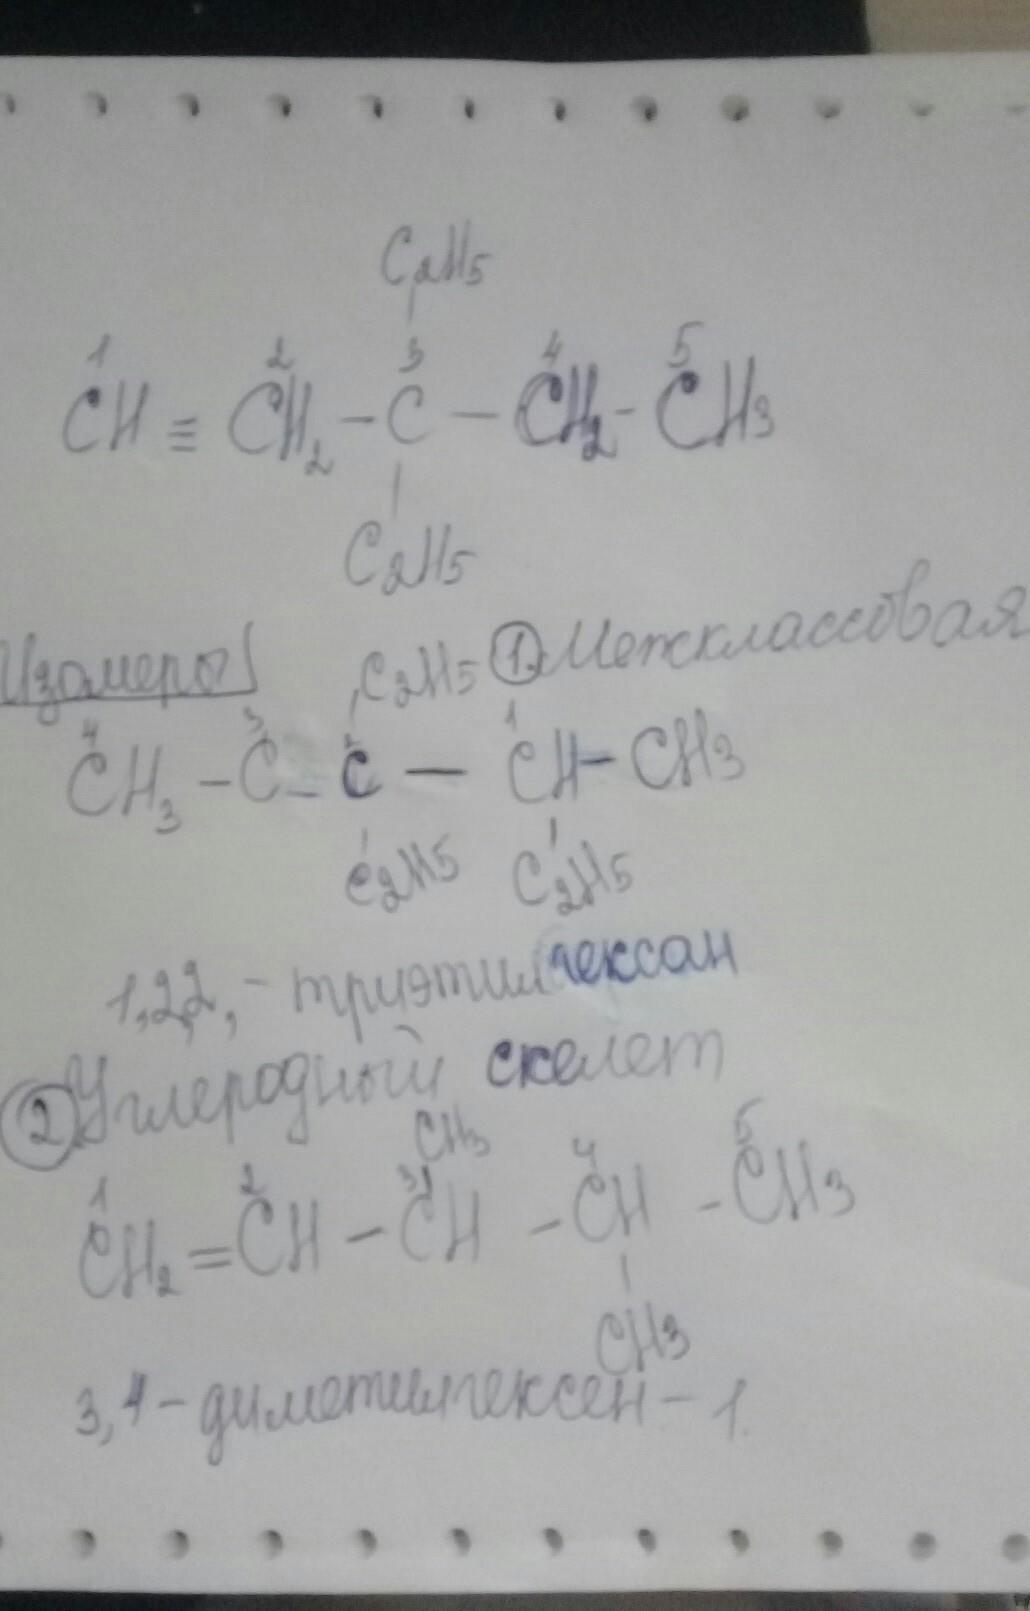 C2H5
1 2 3 4 5
CH ≡ CH2 - C - CH2 - CH3
C2H5
Изомеры
C2H5 1. Межклассовая
4 3 2 1
CH3 - C = C - CH - CH3
C2H5 C2H5
1,2,2, - триэтилгексан
2 Углеродный скелет
CH3
1 2 3 4 5
CH2 = CH - CH - CH - CH3
CH3
3,4 - диметилгексен - 1.